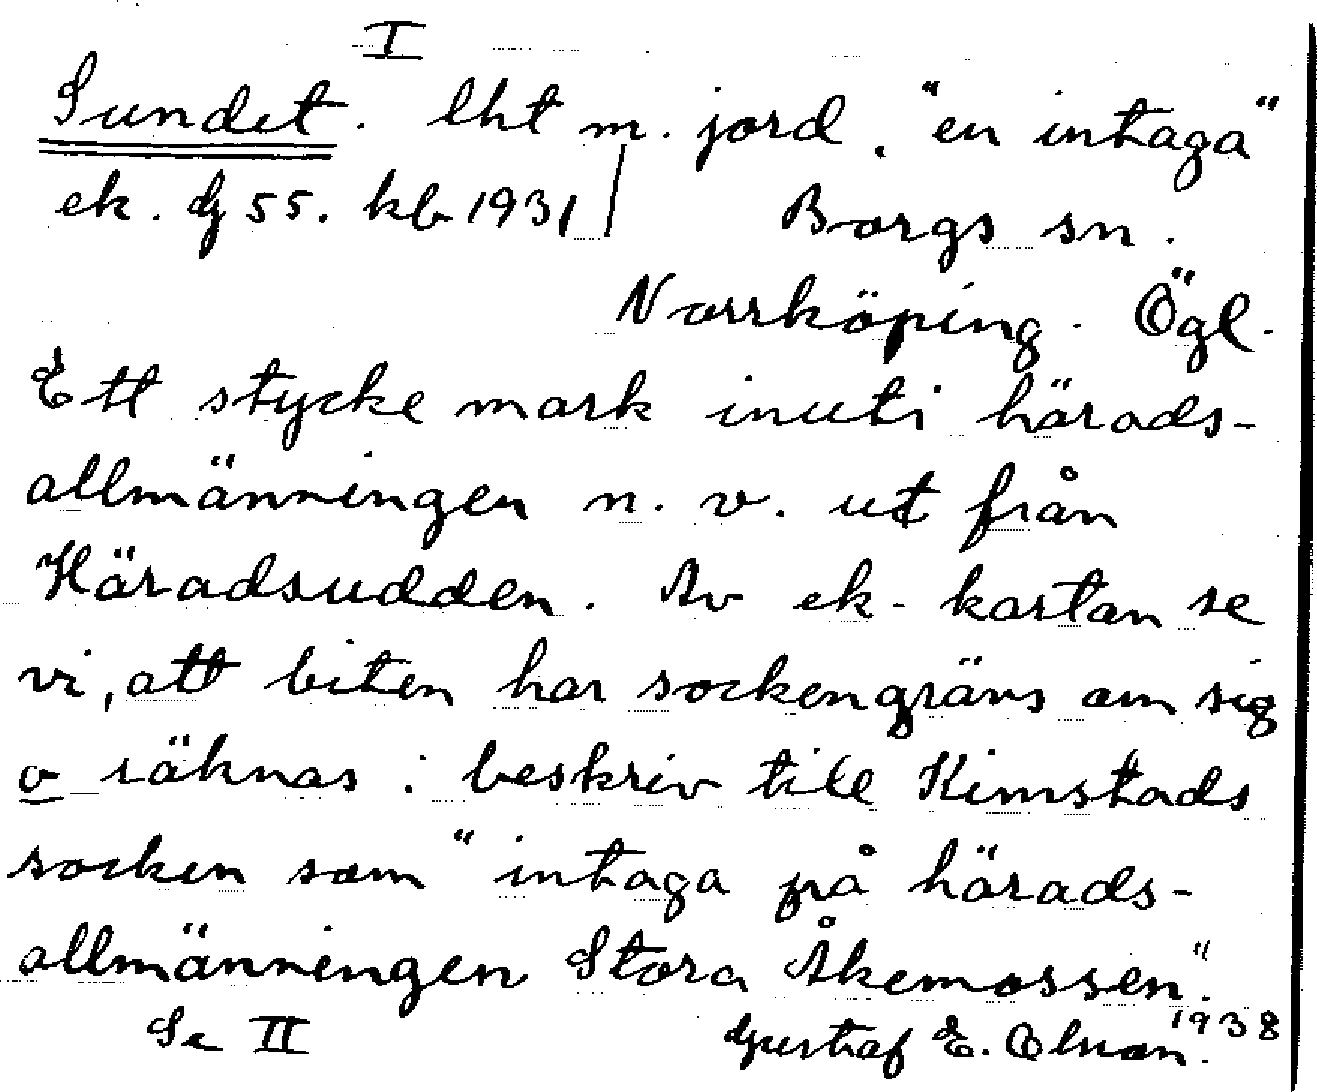 I
Sundet. lht m. jord. "en intaga"
ek. dg 55. kb 1931 / Borgs sn.
Norrköping. Ögl.
Ett stycke mark inuti härads-
allmänningen n. v. ut från
Häradsudden. Av ek-kartan se
vi, att biten har sockengräns om sig
o räknas i beskriv till Kimstads
socken som "intaga på härads-
allmänningen Stora Åkemossen".
Se II Gustaf E. Olson. 1938